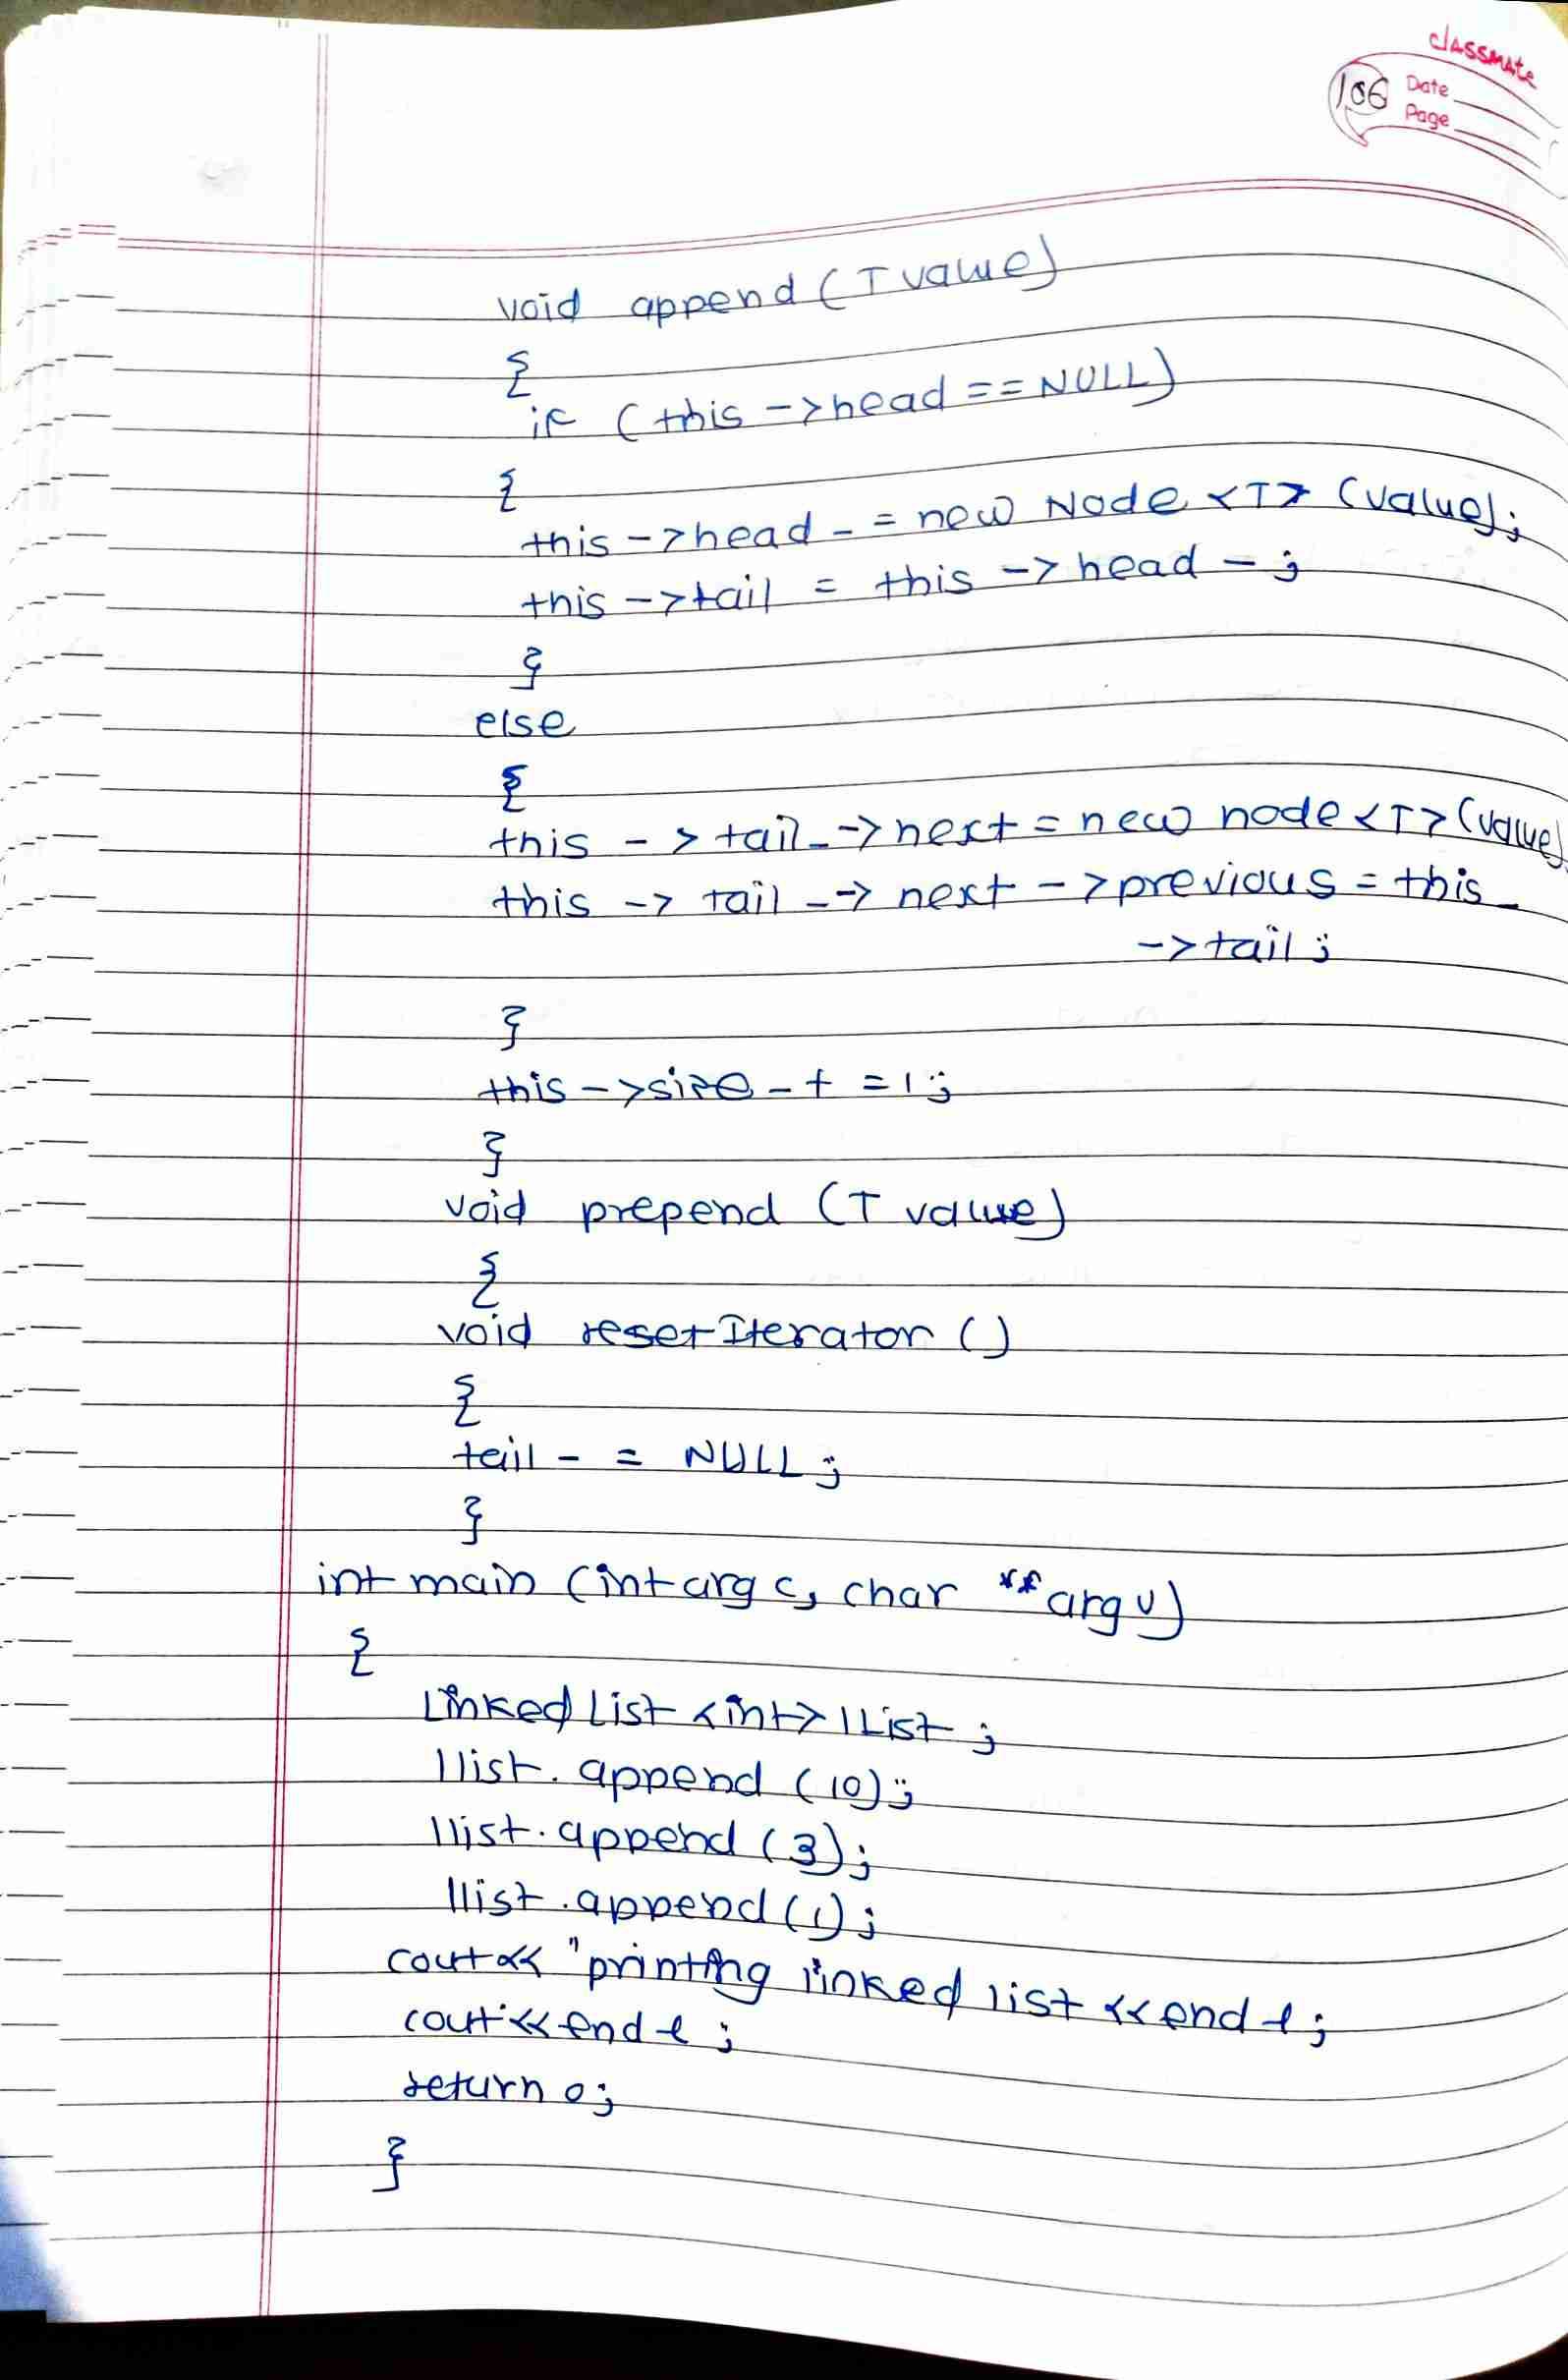 classmate
106 Date
Page
void append (T value)
{
if (this ->head == NULL)
{
this ->head _ = new Node <T> (value);
this ->tail = this -> head _ ;
}
else
{
this -> tail _ -> next = new node <T> (value)
this -> tail _ -> next -> previous = this _
-> tail ;
}
this -> size _ + = 1 ;
}
void prepend (T value)
{
void resetIterator ()
{
tail _ = NULL ;
}
int main (int argc, char **argv)
{
Linked List <int> lList ;
llist. append (10) ;
llist. append (3) ;
llist. append (1) ;
cout << "printing linked list << endl ;
cout << endl ;
return 0 ;
}